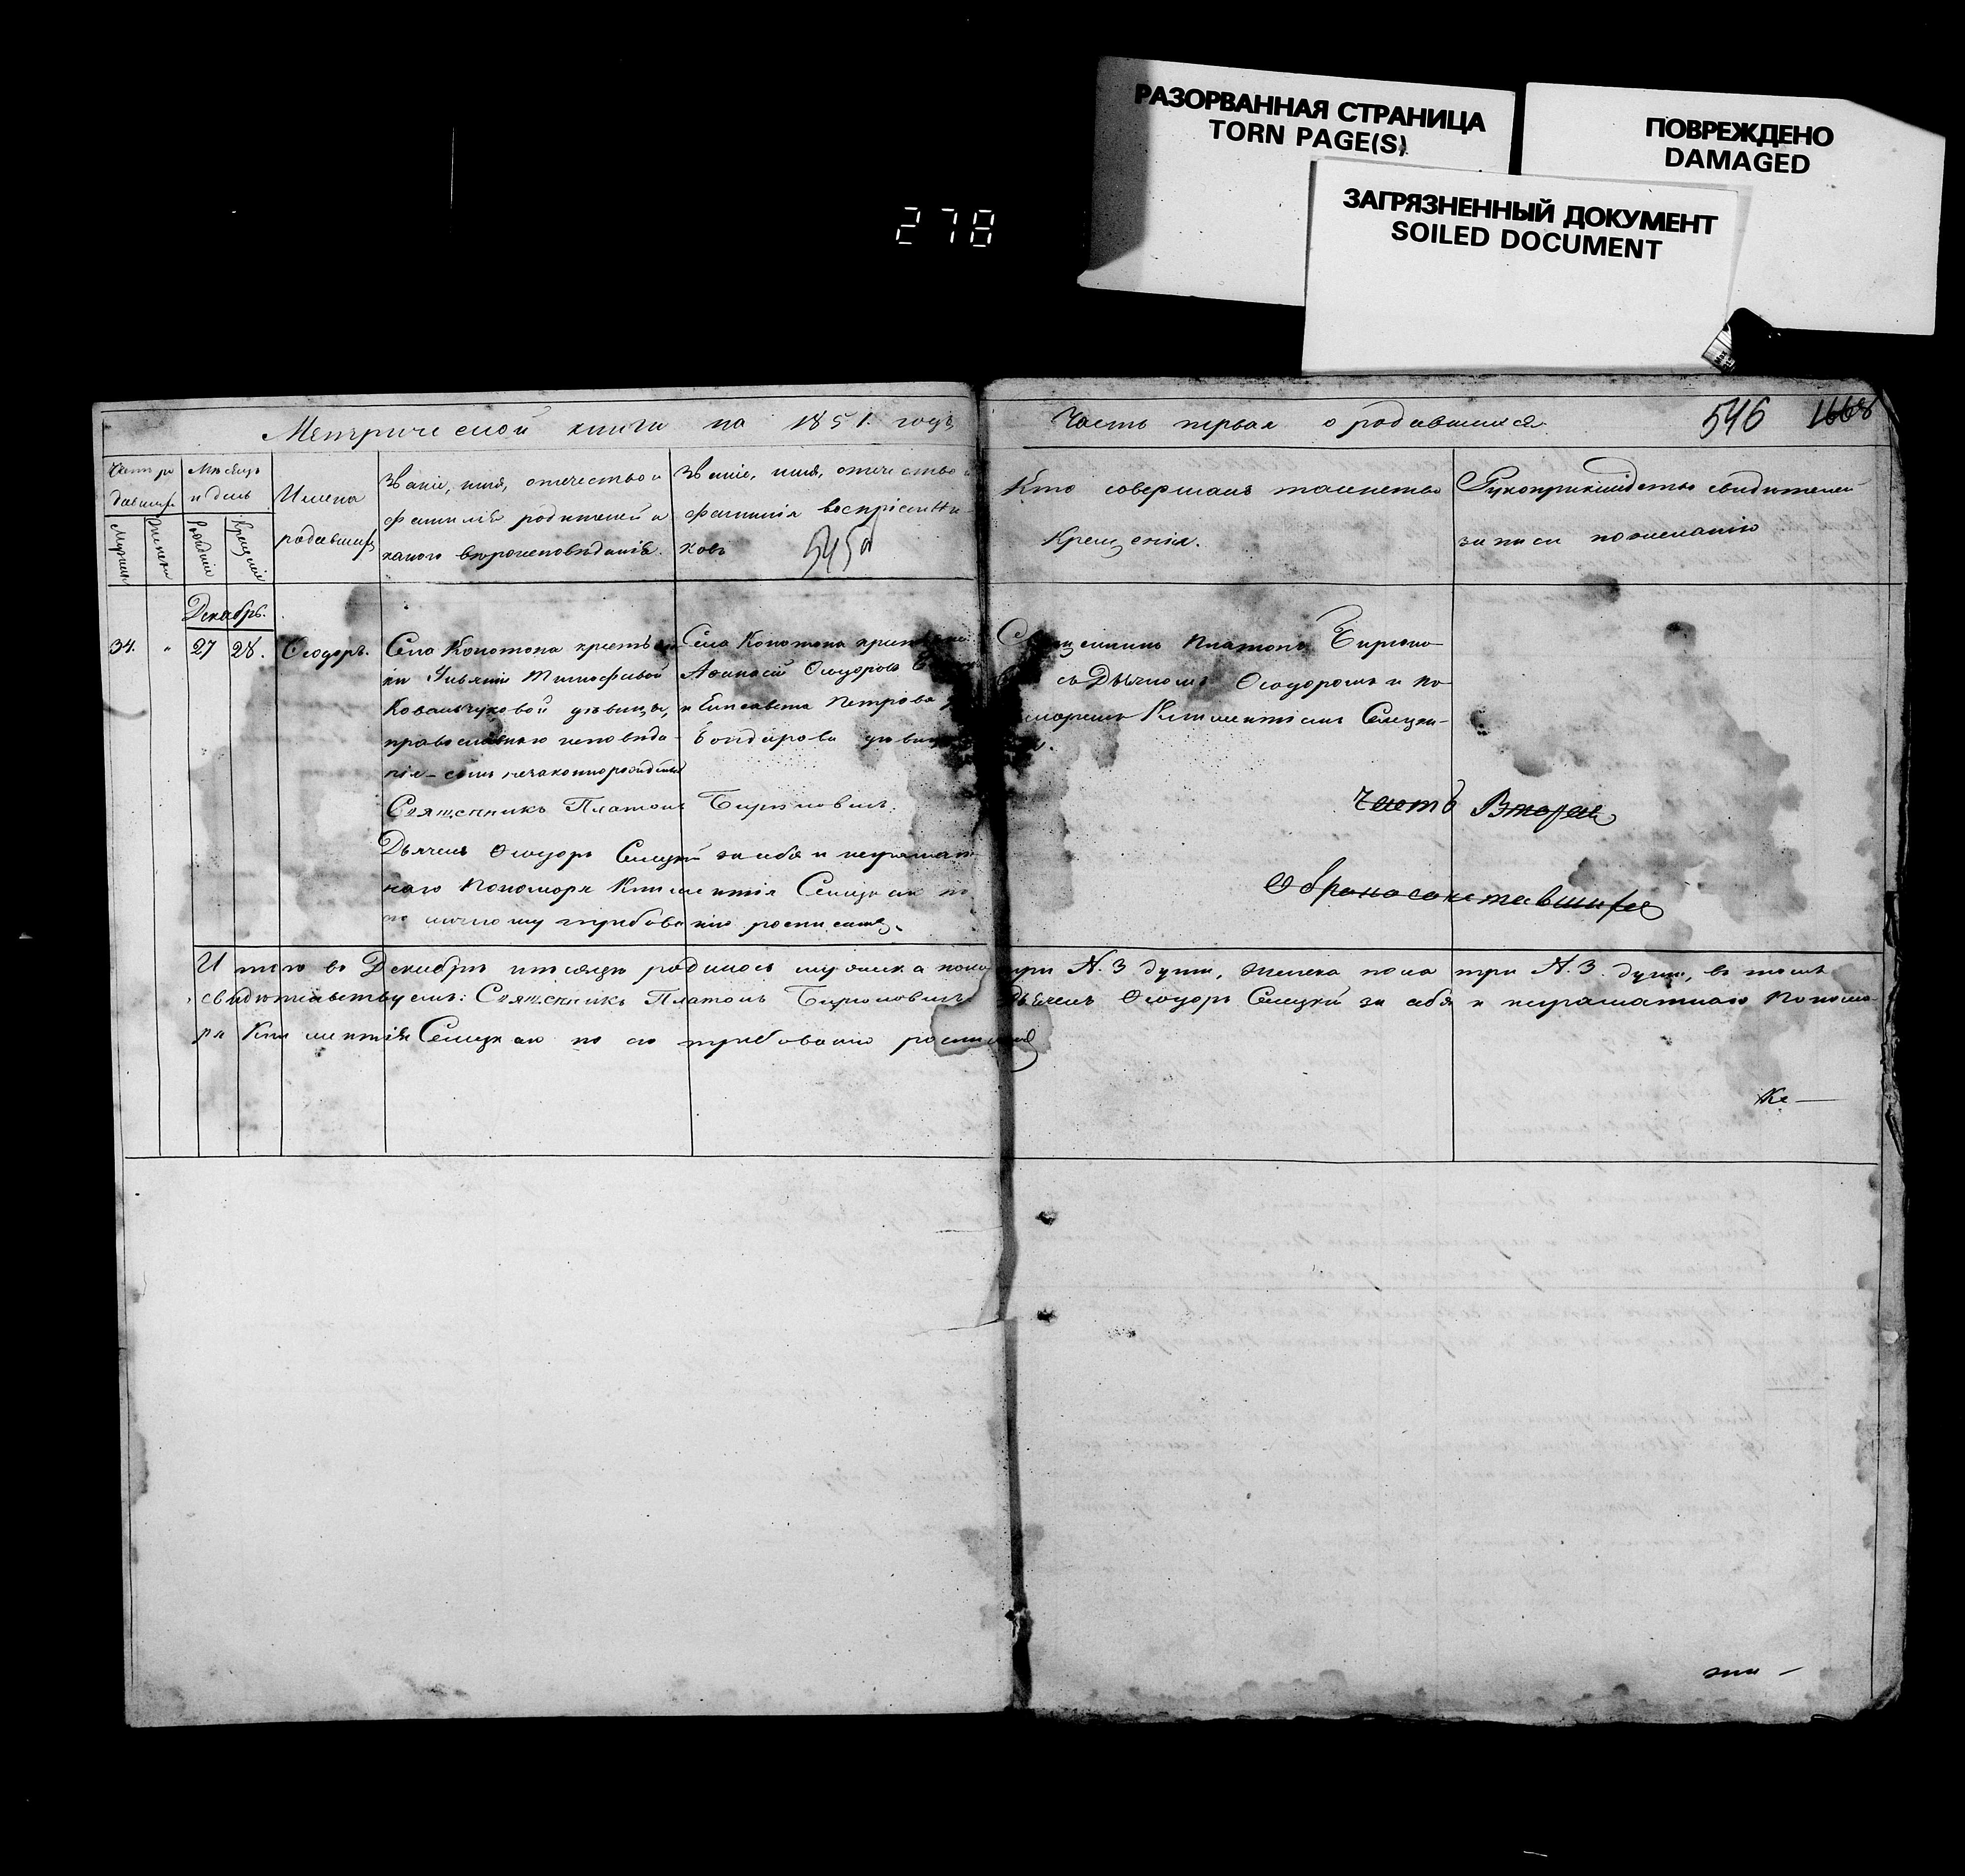 РАЗОРВАННАЯ СТРАНИЦА
TORN PAGE(S)
ПОВРЕЖДЕНО
DAMAGED
ЗАГРЯЗНЕННЫЙ ДОКУМЕНТ
SOILED DOCUMENT
278
Метрической книги на 1851. годъ
Часть первая о родившихся.
546 1668
Мѣсяцъ
и день
Мужеска
Женска
Рожденія
Крещенія
Имена
родившихъ
Званіе, имя, отчество и
фамилія родителей и
какого вѣроисповѣданія.
Званіе, имя, отчество и
фамилія воспріемни-
ковъ
545а
Кто совершалъ таинство
Крещенія.
Рукоприкладство свидѣтелей
записи по желанію
Декабрь.
34. „ 27 28. Ѳеодоръ.
Села Копотопа крестьян-
ки Ульяніи Тимофеевой
Ковальчуковой дѣвицы,
православнаго исповѣда-
нія – сынъ незаконнорожденный
Села Копотопа
Аѳанасій Ѳеодоровъ
и Елисавета Петрова
Бондарова
Платонъ
съ Дьячкомъ Ѳеодоромъ и по-
номаремъ Климентіемъ Селецки-
Священникъ Платонъ
Дьячекъ Ѳеодоръ Селецкій за себя и неграмат-
наго Пономаря Климентія Селецкаго
по личному требованію росписался.
Часть Вторая
О бракосочетавшихся
Итого въ Декабрѣ мѣсяцѣ родилось мужеска пола три №. 3 души, женска пола три №. 3. души, въ томъ
свидѣтельствуемъ: Священникъ Платонъ Дьячекъ Ѳеодоръ Селецкій за себя и неграматнаго Понома-
ря Климентія Селецкаго по его требованію росписался